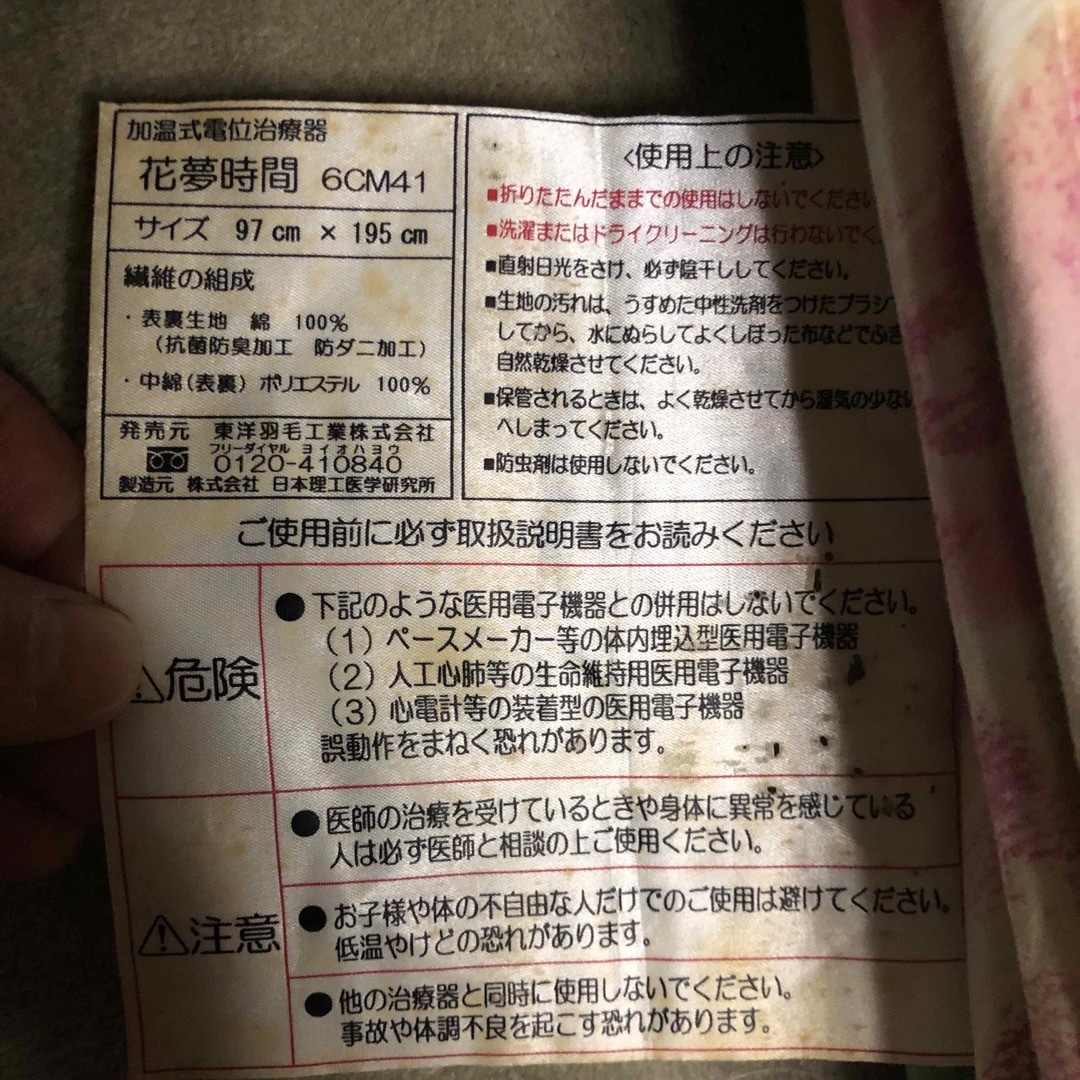 加温式電位治療器
花夢時間 6CM41
サイズ 97cm × 195cm
繊維の組成
・表裏生地 綿 100%
(抗菌防臭加工 防ダニ加工)
・中綿(表裏) ポリエステル 100%
発売元 東洋羽毛工業株式会社
フリーダイヤル ヨイオハヨウ
0120-410840
製造元 株式会社 日本理工医学研究所
〈使用上の注意〉
■折りたたんだままでの使用はしないでください
■洗濯またはドライクリーニングは行わないでく
■直射日光をさけ、必ず陰干ししてください。
■生地の汚れは、うすめた中性洗剤をつけたブラシ
してから、水にぬらしてよくしぼった布などでふき
自然乾燥させてください。
■保管されるときは、よく乾燥させてから湿気の少ない
へしまってください。
■防虫剤は使用しないでください。
ご使用前に必ず取扱説明書をお読みください
⚠危険
●下記のような医用電子機器との併用はしないでください。
(1) ペースメーカー等の体内埋込型医用電子機器
(2) 人工心肺等の生命維持用医用電子機器
(3) 心電計等の装着型の医用電子機器
誤動作をまねく恐れがあります。
⚠注意
●医師の治療を受けているときや身体に異常を感じている
人は必ず医師と相談の上ご使用ください。
●お子様や体の不自由な人だけでのご使用は避けてください。
低温やけどの恐れがあります。
●他の治療器と同時に使用しないでください。
事故や体調不良を起こす恐れがあります。